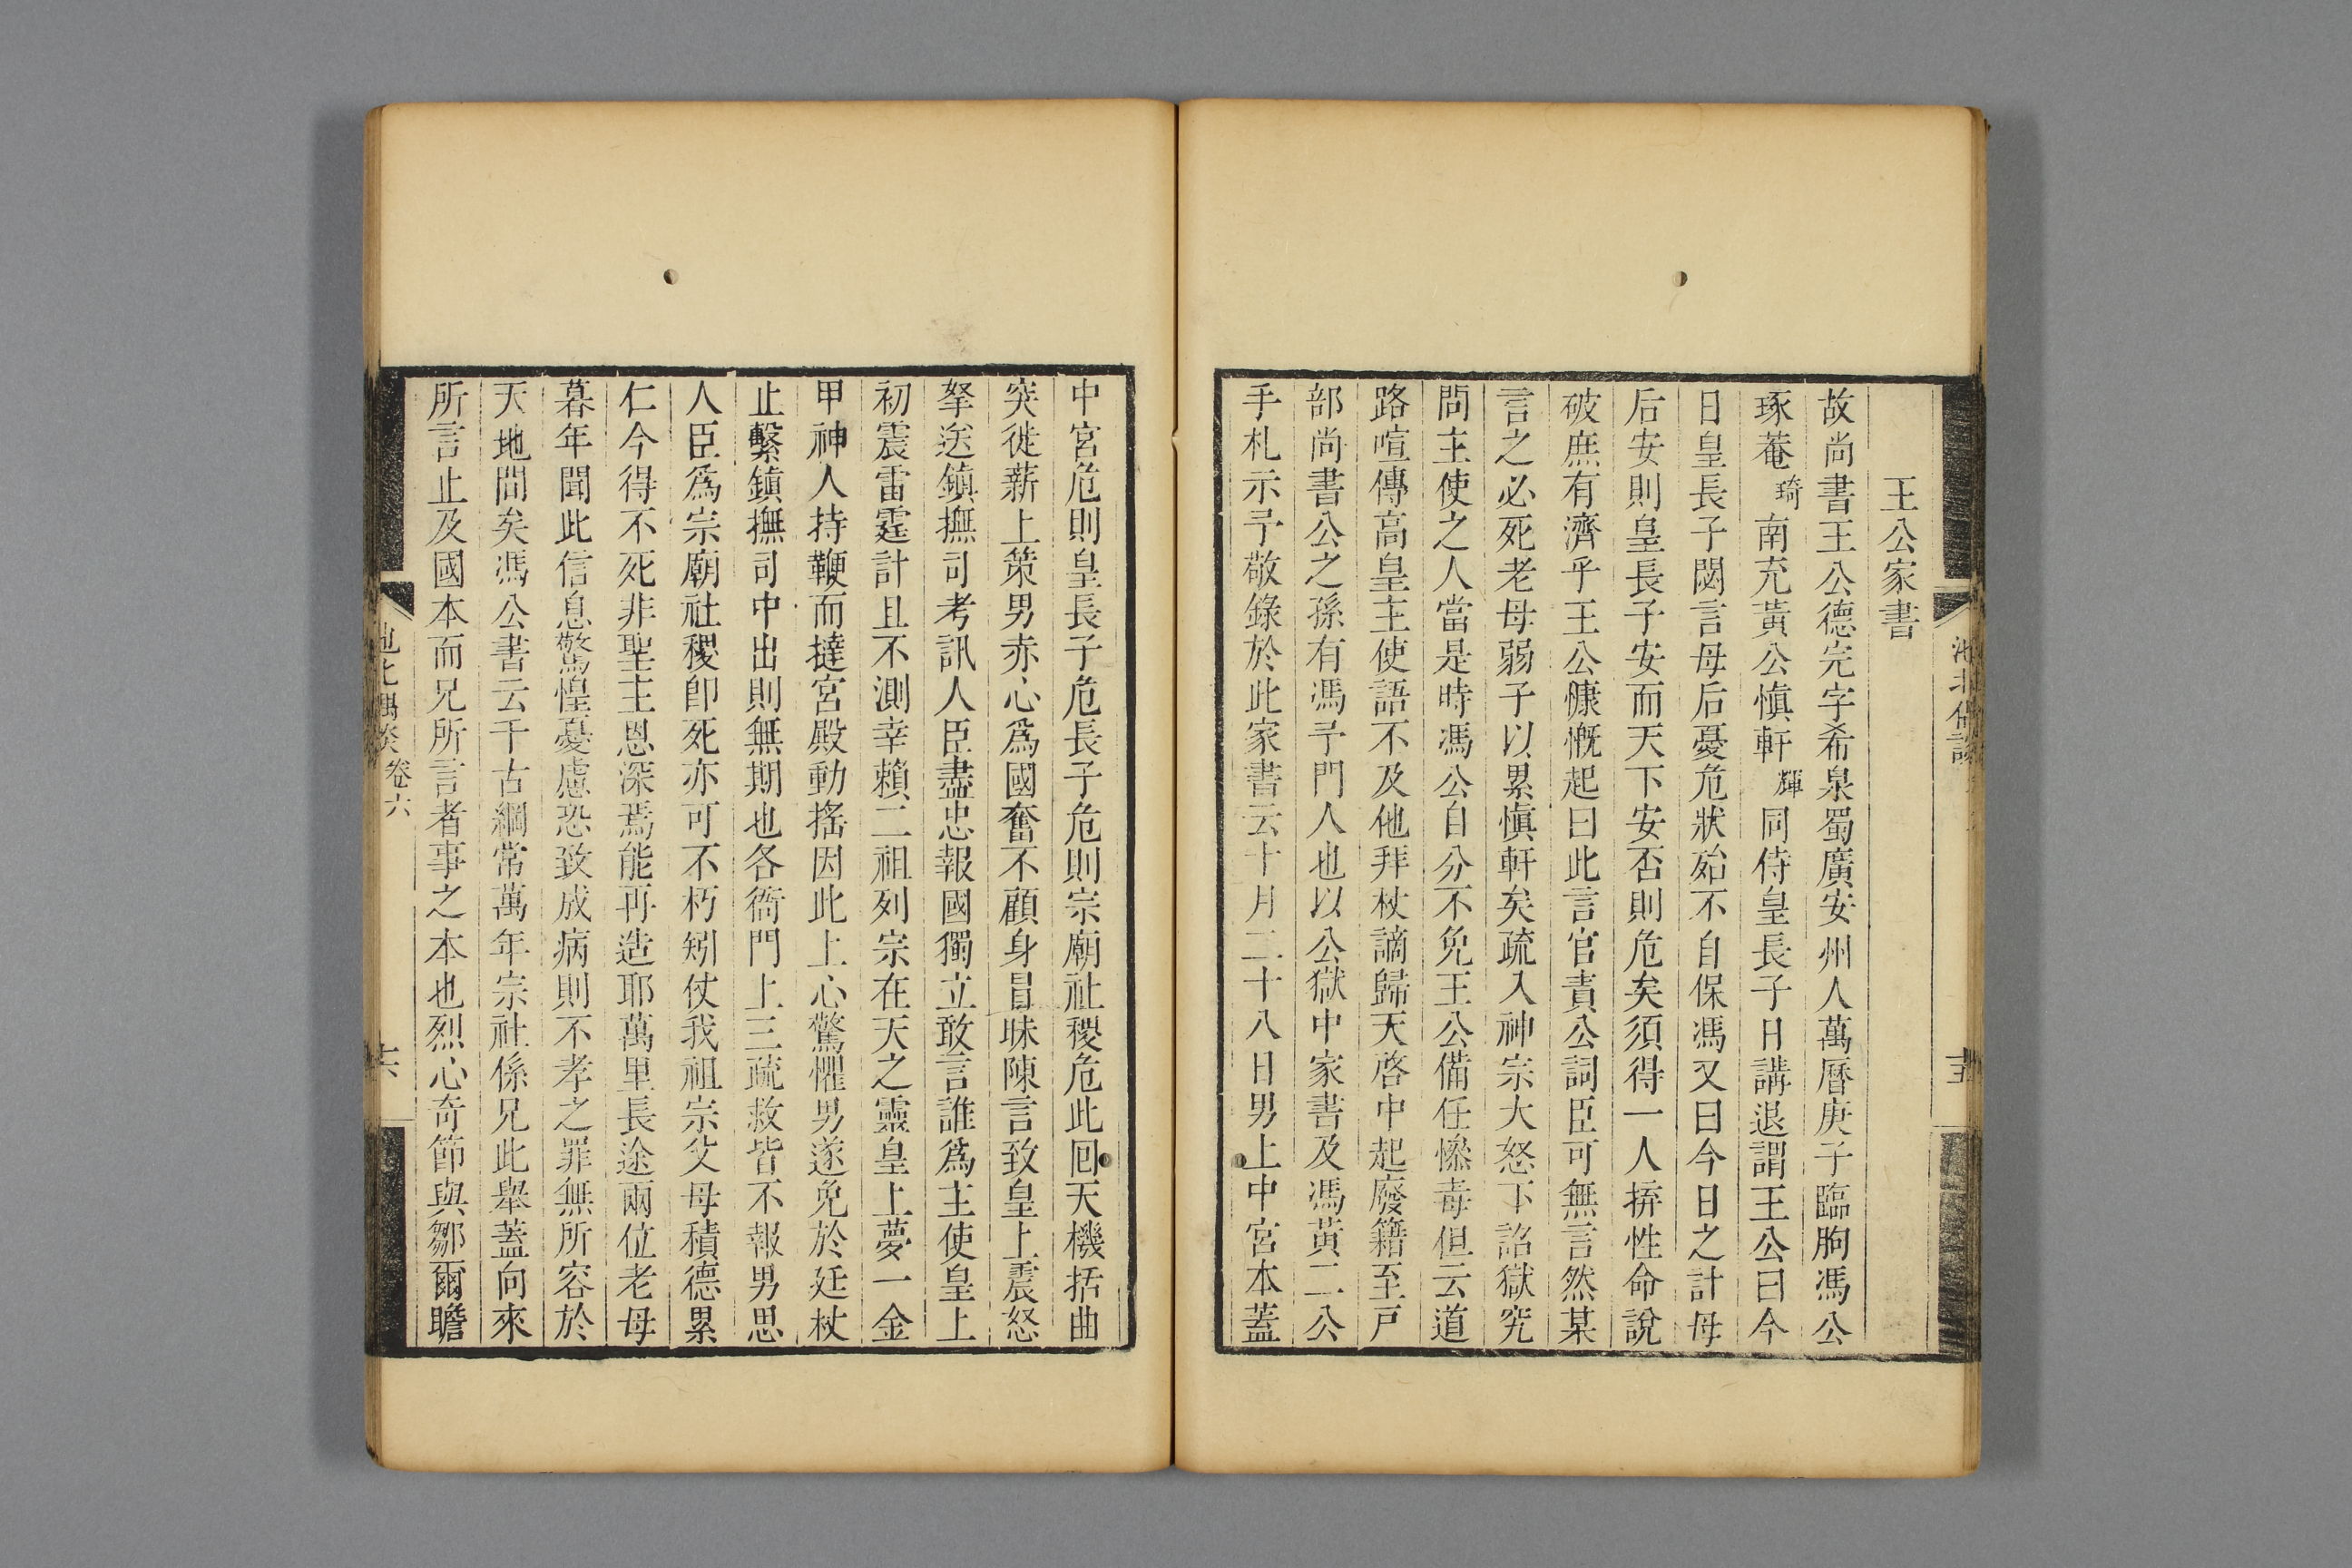 王公家書
故尚書王公德完字希泉蜀廣安州人萬曆庚子臨朐馮公
琢菴琦南充黃公愼軒輝同侍皇長子日講退謂王公曰今
日皇長子閟言母后憂危狀殆不自保馮又曰今日之計母
后安則皇長子安而天下安否則危矣須得一人捹性命說
破庶有濟乎王公慷慨起曰此言官責公詞臣可無言然某
言之必死老母弱子以累愼軒矣疏入神宗大怒下詔獄究
問主使之人當是時馮公自分不免王公備任慘毒但云道
路喧傳高皇主使語不及他拜杖謫歸天啓中起廢籍至戸
部尚書公之孫有馮予門人也以公獄中家書及馮黃二公
手札示予敬錄於此家書云十月二十八日男上中宮本蓋
中宮危則皇長子危長子危則宗廟社稷危此回天機括曲
突徙薪上策男赤心爲國奮不顧身冒昧陳言致皇上震怒
拏送鎮撫司考訊人臣盡忠報國獨立敢言誰爲主使皇上
初震雷霆計且不測幸賴二祖列宗在天之靈皇上夢一金
甲神人持鞭而撻宮殿動搖因此上心驚懼男遂免於廷杖
止繫鎮撫司中出則無期也各衙門上三疏救皆不報男思
人臣爲宗廟社稷卽死亦可不朽矧仗我祖宗父母積德累
仁今得不死非聖主恩深焉能再造耶萬里長途兩位老母
暮年聞此信息驚惶憂慮恐致成病則不孝之罪無所容於
天地間矣馮公書云千古綱常萬年宗社係兄此舉蓋向來
所言止及國本而兄所言者事之本也烈心奇節與鄒爾瞻
卷六